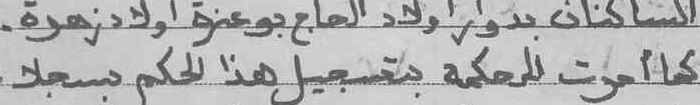 الساكنان بدوار اولاد الحاج بوعنزة اولاد زهرة.
كما أمرت المحكمة بتسجيل هذا الحكم بسجلا